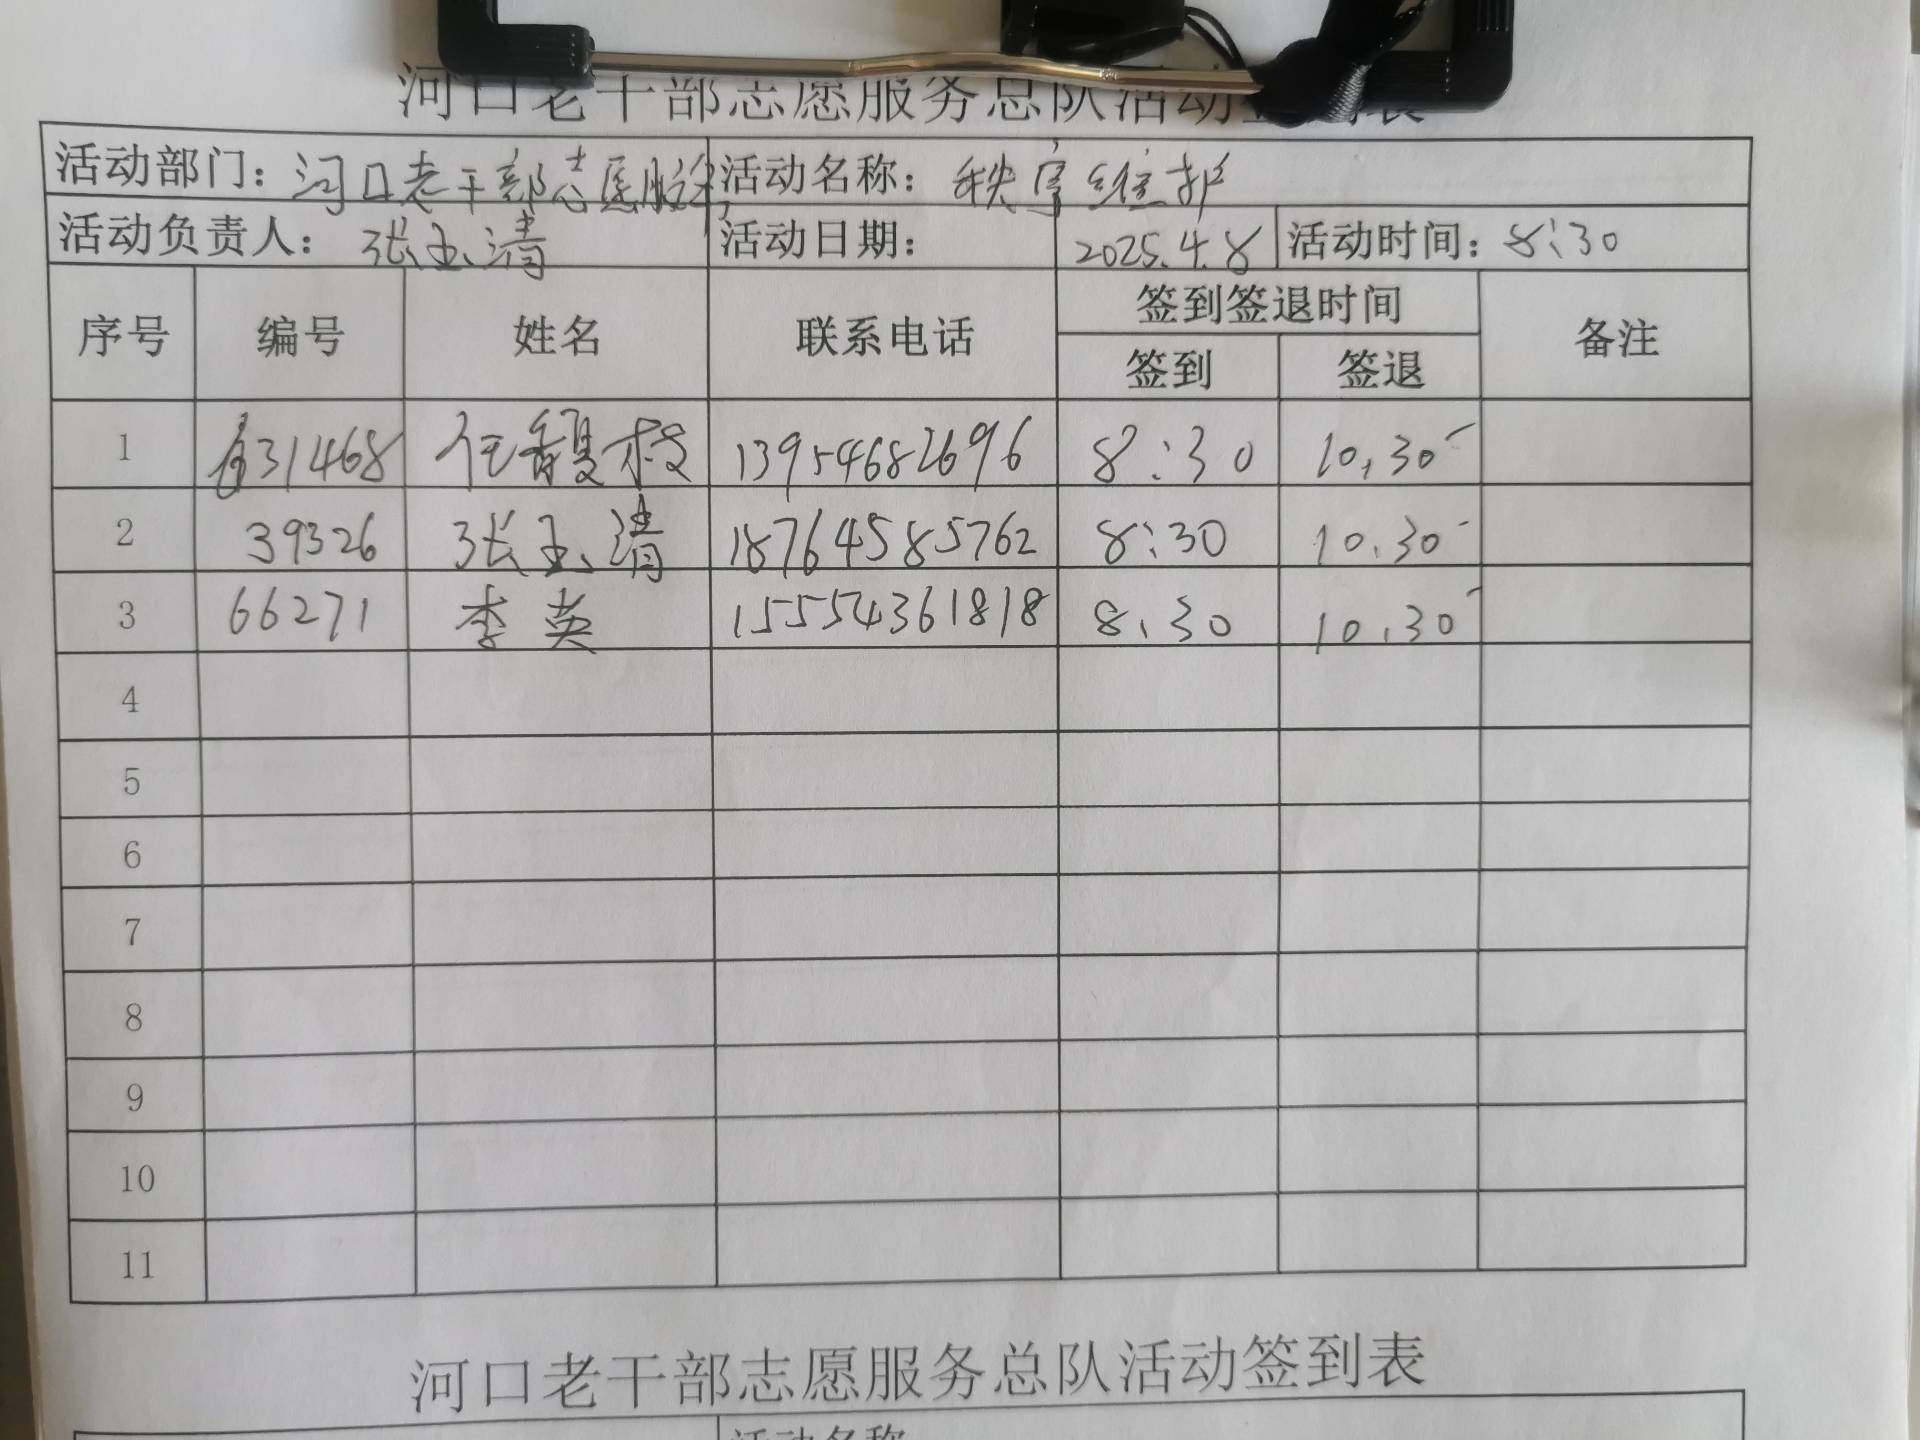 河口老干部志愿服务总队活动签到表
活动部门：河口老干部志愿服务 活动名称：秩序维护
活动负责人：张玉清 活动日期：2025.4.8 活动时间：8:30
签到签退时间
序号 编号 姓名 联系电话 备注
签到 签退
1 631468 任馥枝 13954682696 8:30 10.30
2 39326 张玉清 18764585762 8:30 10.30
3 66271 李英 15554361818 8.30 10.30
4
5
6
7
8
9
10
11
河口老干部志愿服务总队活动签到表
活动名称